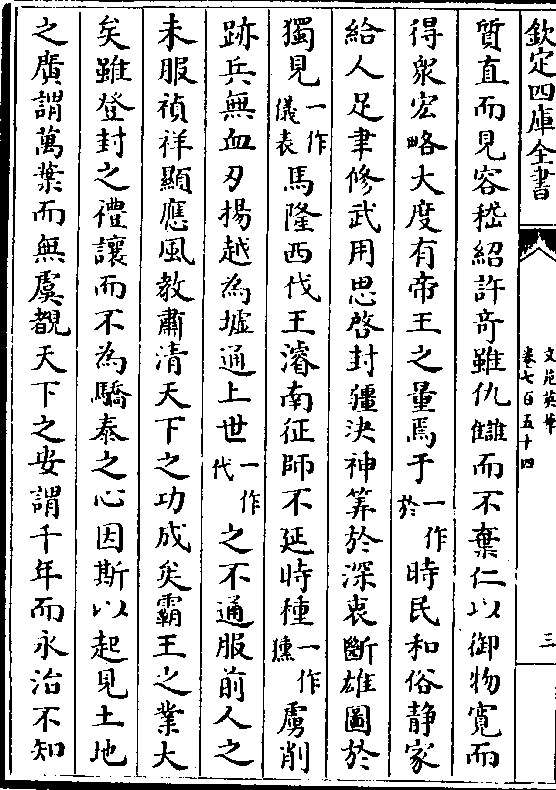 欽定四庫全書
文苑英華
卷七百五十四
三
質直而見容嵇紹許竒雖仇讎而不棄仁以御物寛而
得衆宏略大度有帝王之量焉于一作於時民和俗静家
給人足聿修武用思啓封疆決神筭於深衷斷雄圖於
獨見一作儀表馬隆西伐王濬南征師不延時種一作獯虜削
跡兵無血刃揚越為墟通上世一作代之不通服前人之
未服禎祥顯應風教肅清天下之功成矣霸王之業大
矣雖登封之禮讓而不為驕泰之心因斯以起見土地
之廣謂萬葉而無虞覩天下之安謂千年而永治不知